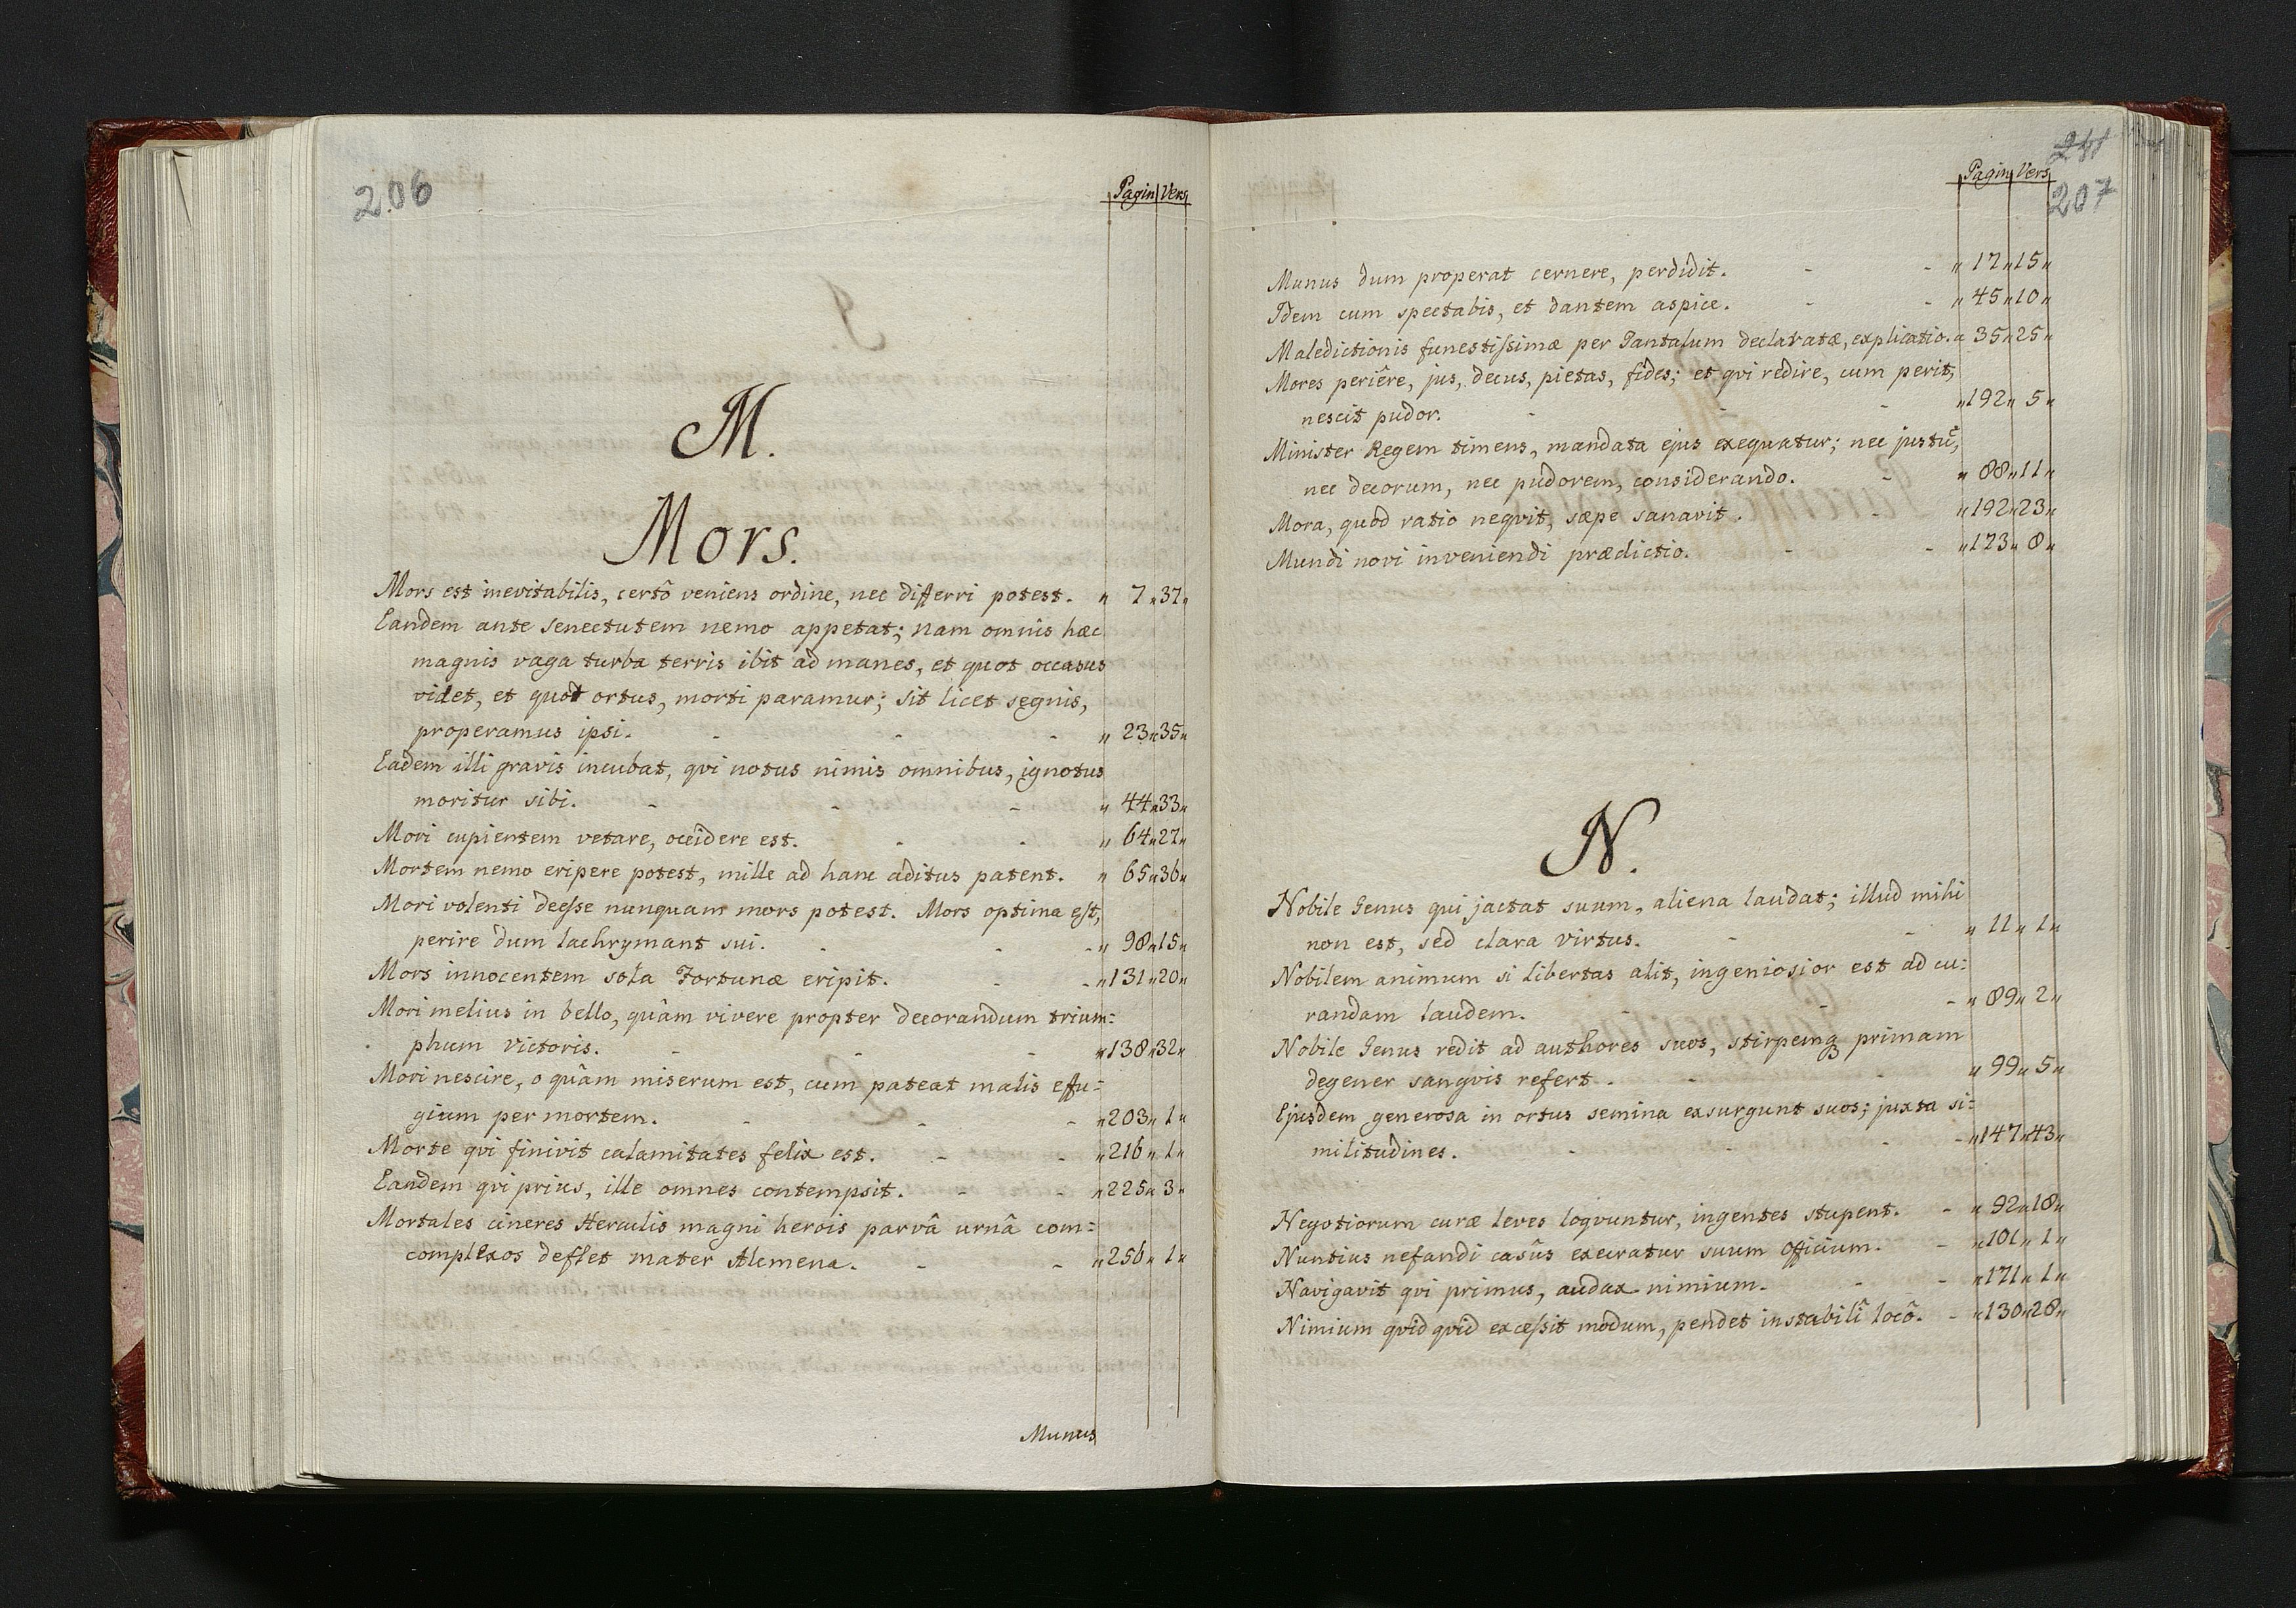 206
Pagin Vers
M.
Mors.
Mors est inevitabilis, certô veniens ordine, nec differri potest. „ 7 „ 37 „
Eandem ante senectutem nemo appetat; nam omnis hæc
magnis vaga turba terris ibit ad manes, et quot occasus
videt, et quot ortus, morti paramur; sit licet segnis,
properamus ipsi. - - - „ 23 „ 35 „
Eadem illi gravis incubat, qvi notus nimis omnibus, ignotus
moritur sibi. - - - „ 44 „ 33 „
Mori cupientem vetare, occidere est. - - „ 64 „ 27 „
Mortem nemo eripere potest, mille ad hanc aditus patent. „ 65 „ 36 „
Mori volenti deesse nunquam mors potest. Mors optima est,
perire dum lachrymant sui. - - - „ 98 „ 15 „
Mors innocentem sola Fortunæ eripit. - - „ 131 „ 20 „
Mori melius in bello, quâm vivere propter decorandum trium:
phum victoris. - - - „ 138 „ 32 „
Mori nescire, o quâm miserum est, cum pateat malis effu:
gium per mortem. - - - „ 203 „ 1 „
Morte qvi finivit calamitates felix est. - - „ 216 „ 1 „
Eandem qvi prius, ille omnes contempsit. - - „ 225 „ 3 „
Mortales cineres Herculis magni herois parvâ urnâ com:
complexos deflet mater Alcmena. - - „ 256 „ 1 „
Munus
Pagin Vers
207
Munus dum properat cernere, perdidit. - - „ 17 „ 15 „
Idem cum spectabis, et dantem aspice. - - „ 45 „ 10 „
Maledictionis funestissimæ per Tantalum declaratæ, explicatio. „ 35 „ 25 „
Mores periêre, jus, decus, pietas, fides; et qvi redire, cum perit,
nescit pudor. - - - „ 192 „ 5 „
Minister Regem timens, mandata ejus exequatur; nec justũ,
nec decorum, nec pudorem, considerando. - „ 88 „ 11 „
Mora, quod ratio neqvit, sæpe sanavit. - „ 192 „ 23 „
Mundi novi inveniendi prædictio. - - „ 173 „ 8 „
N.
Nobile Genus qui jactat suum, aliena laudat; illud mihi
non est, sed clara virtus. - - „ 11 „ 1 „
Nobilem animum si libertas alit, ingeniosior est ad cu:
randam laudem. - - - „ 89 „ 2 „
Nobile Genus redit ad authores suos, stirpemq; primam
degener sangvis refert. - - „ 99 „ 5 „
Ejusdem generosa in ortus semina exsurgunt suos; juxta si:
militudines. - - - - „ 147 „ 43 „
Negotiorum curæ leves loqvuntur, ingentes stupent. - „ 92 „ 18 „
Nuntius nefandi casûs execratur suum officium. - „ 101 „ 1 „
Navigavit qvi primus, audax nimium. - - „ 171 „ 1 „
Nimium qvid qvid excessit modum, pendet instabilî locô. - „ 130 „ 28 „